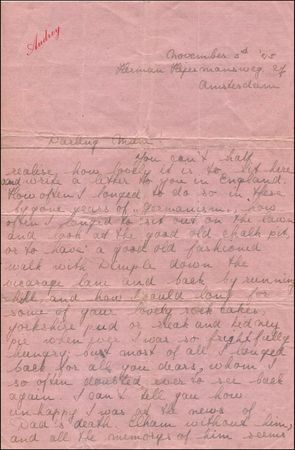 Audrey
November 3d '45
Herman Heyermansweg 27
Amsterdam
Darling Mum
You can't half
realise, how lovely it is to sit here
and write a letter to you in England.
How often I longed to do so in these
bygone years of "Germanism", how
often I longed to sit out on the lawn
and look at the good old chalk pit,
or to have a good old fashioned
walk with Dimple down the
vicarage lane and back by running
hill, and how I could long for
some of your lovely rock cakes,
yorkshire pud or steak and kidney
pie when ever I was so frightfully
hungry, but most of all I longed
back for all you dears, whom I
so often doubted ever to see back
again. I can't tell you how
unhappy I was at the news of
Dad's death. Elham without him,
and all the memorys of him seems